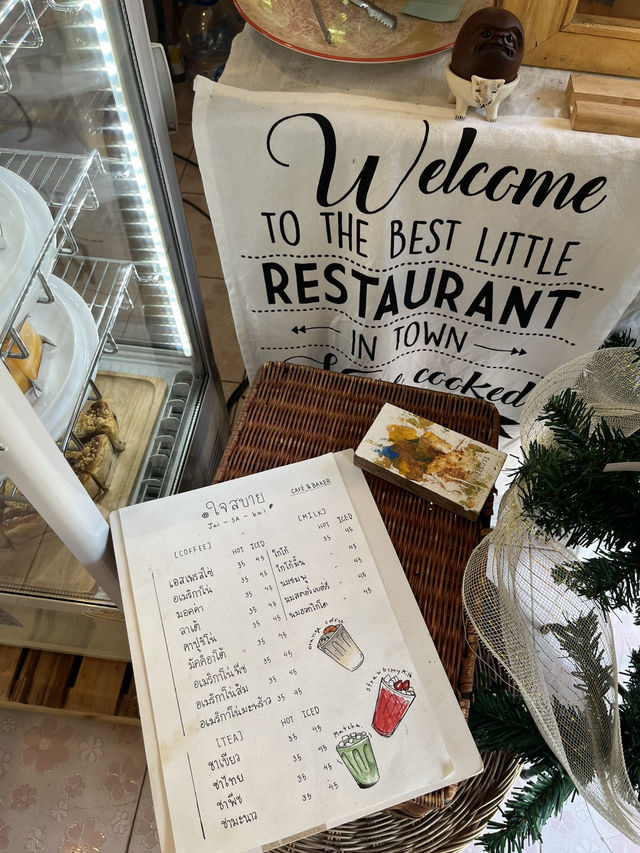 Welcome
TO THE BEST LITTLE
RESTAURANT
IN TOWN
cooked
ใจสบาย
CAFÉ & BAKER
Jai - SA - bai
[COFFEE] HOT ICED
เอสเพรสโซ่ 35 45
อเมริกาโน่ 35 45
มอคคา 35 45
ลาเต้ 35 45
คาปูชิโน่ 35 45
มัคคิอาโต้ 35 45
อเมริกาโน่พีช 45
อเมริกาโน่ส้ม 45
อเมริกาโน่มะพร้าว 35 45
[MILK] HOT ICED
โกโก้ 35 45
โกโก้มิ้น - 45
นมชมพู - 45
นมสตอร์เบอร์รี่ - 45
นมฮอกไกโด - 45
orange coffee
strawberry milk
Matcha
[TEA] HOT ICED
ชาเขียว 35 45
ชาไทย 35 45
ชาพีช 35 45
ชามะนาว 35 45